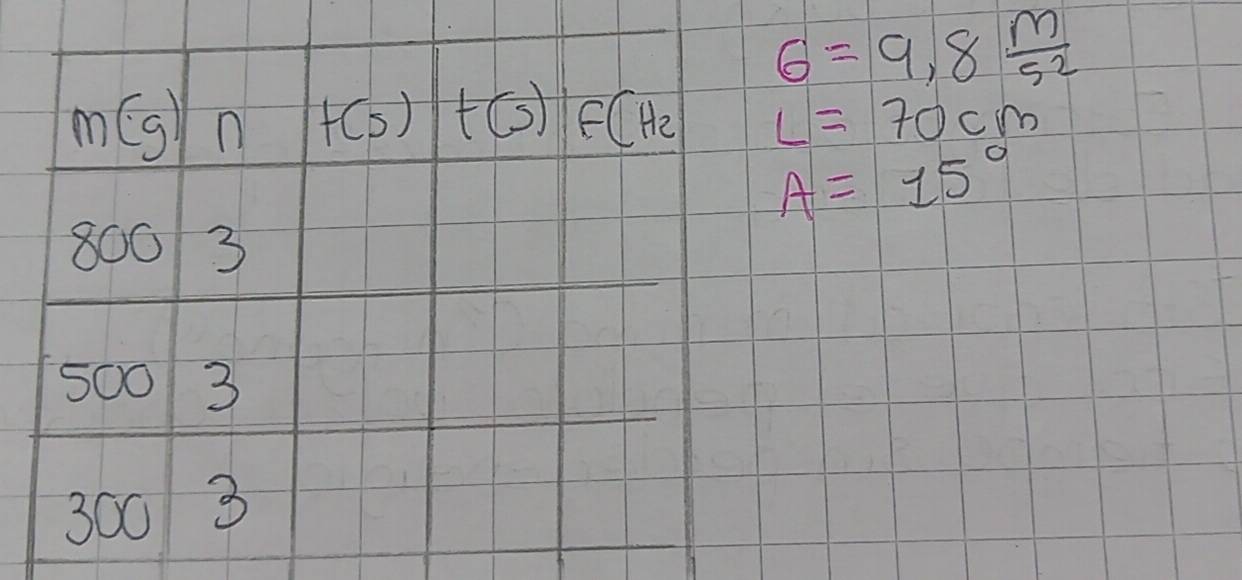 m(g) n t(s) t(s) F(Hz
800 3
500 3
300 3
G = 9,8 m/s2
L = 70cm
A = 15°